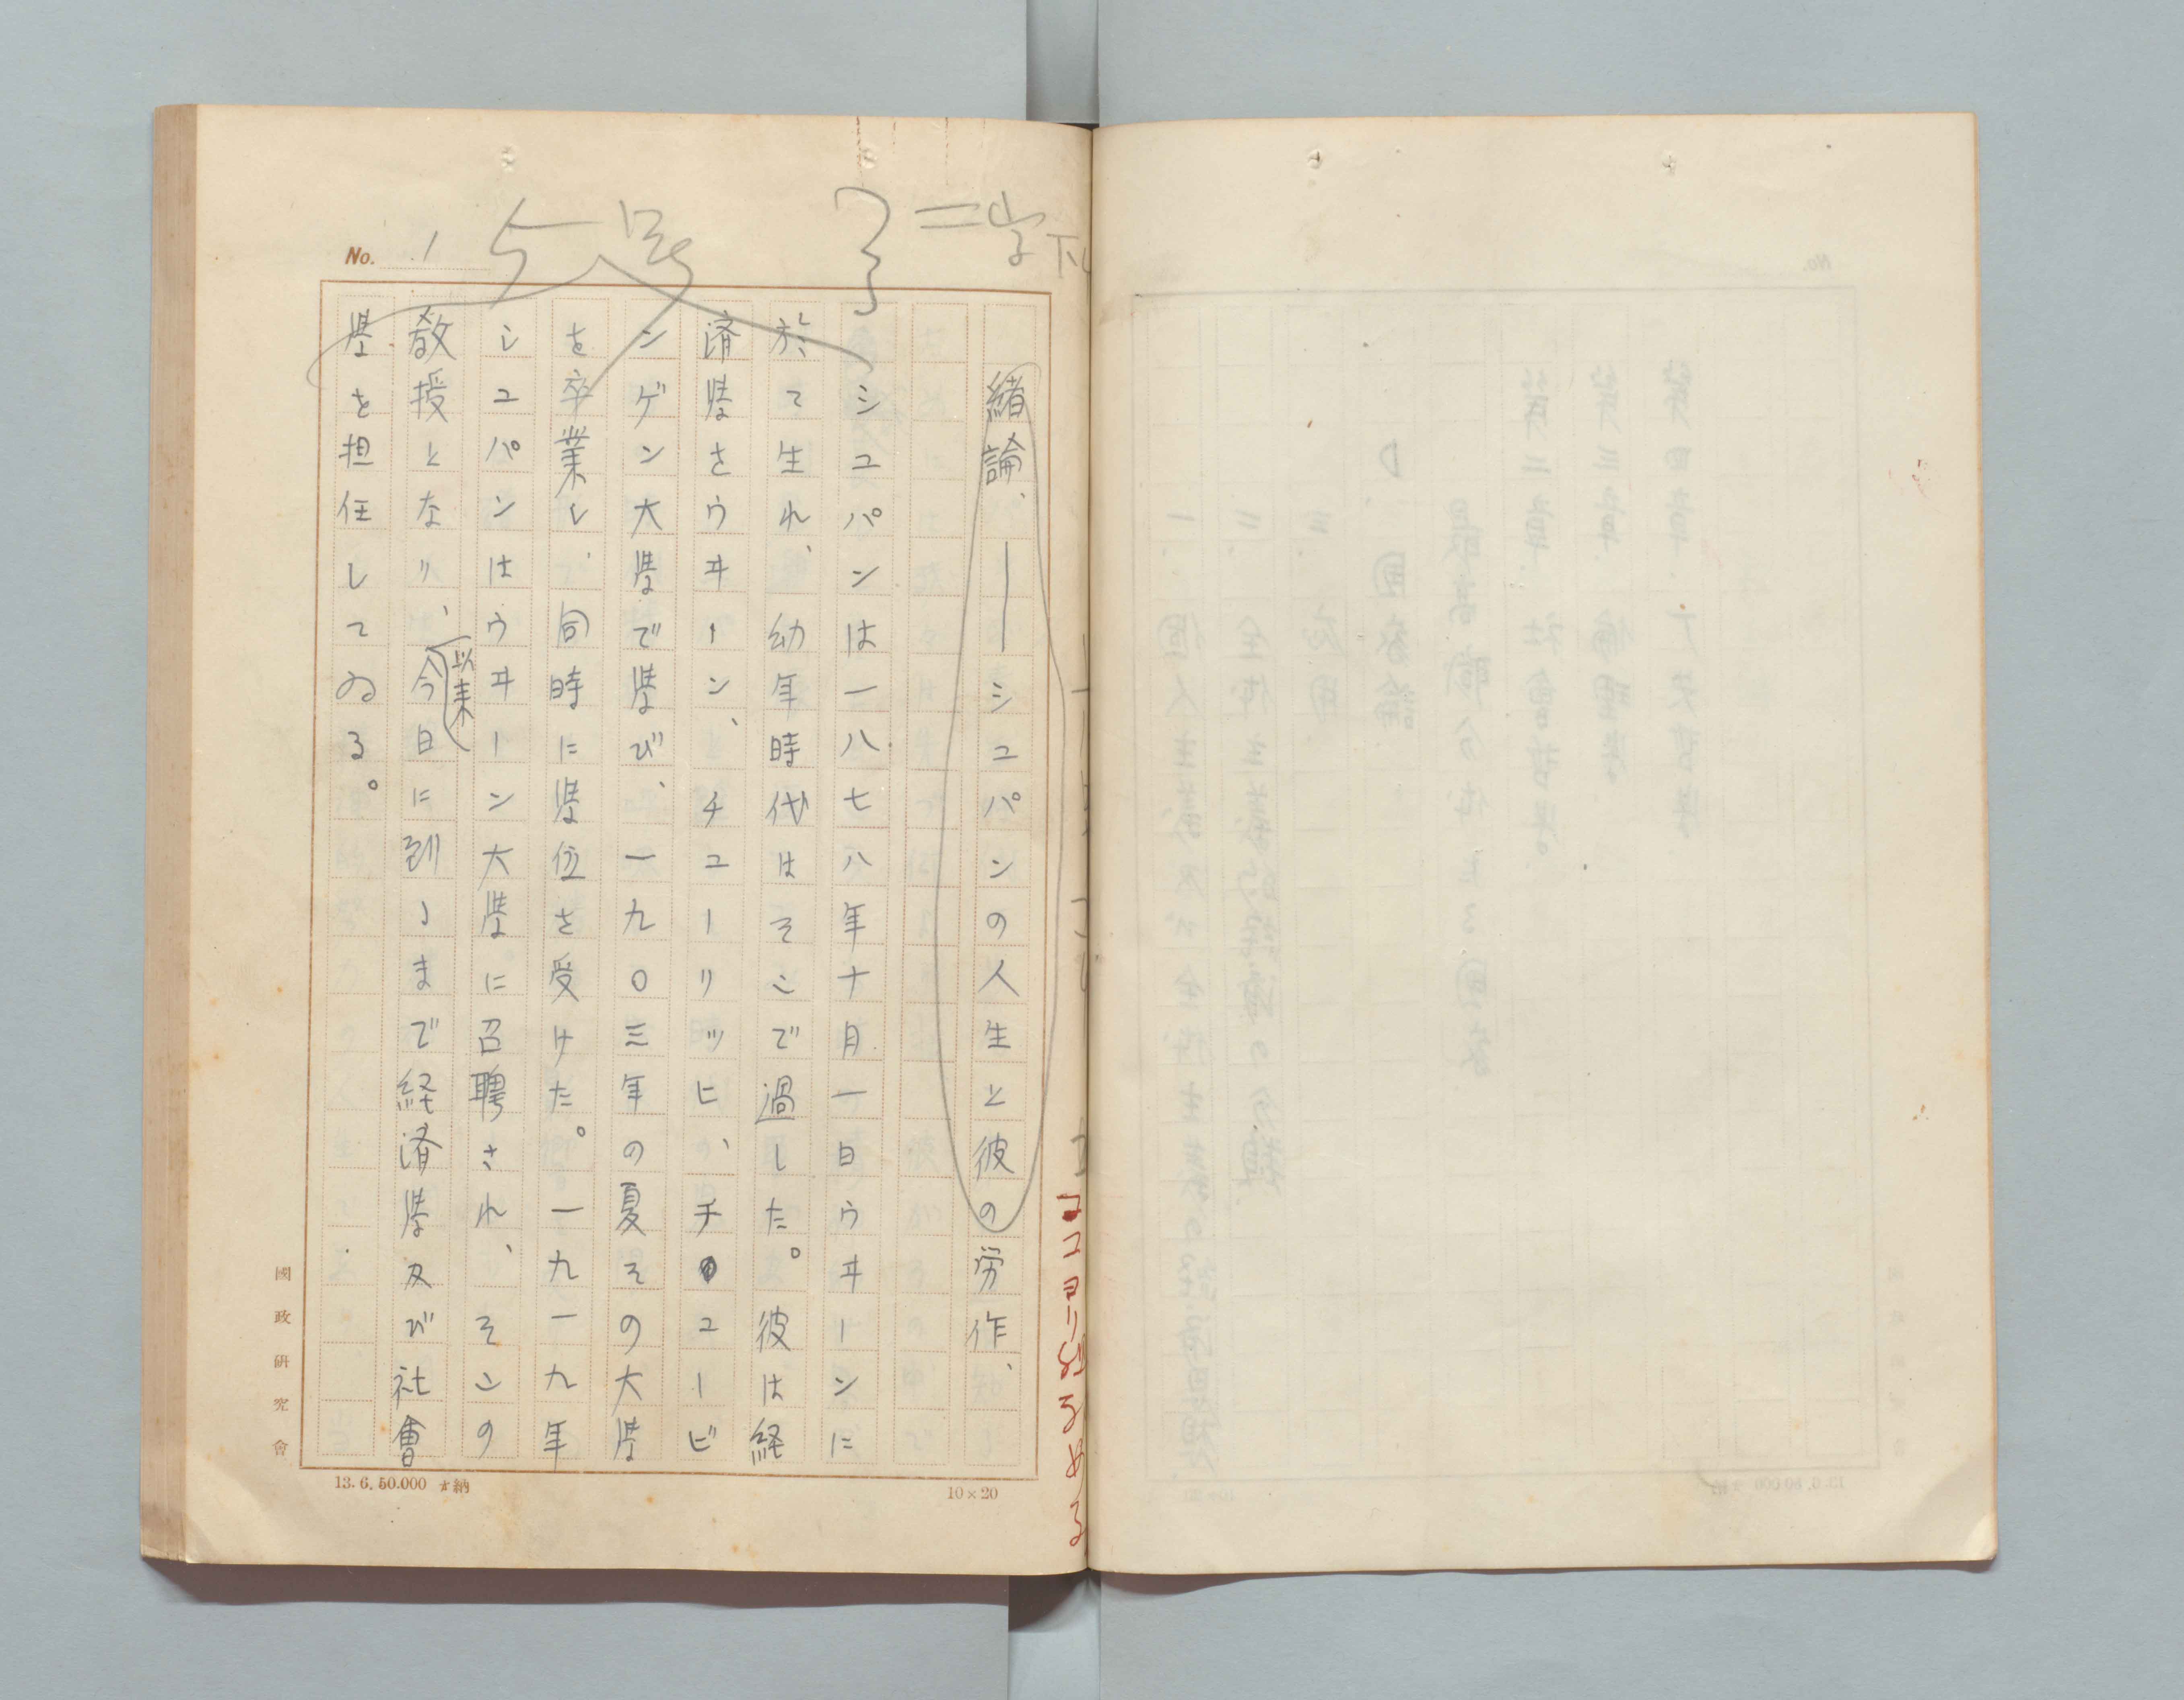 No. 1
5号
二字下
緒論、――シュパンの人生と彼の労作、
シユパンは一八七八年十月一日ウヰーンに
於て生れ、幼年時代はそこで過した。彼は経
済学をウヰーン、チユーリッヒ、チユービ
ンゲン大学で学び、一九〇三年の夏その大学
を卒業し、同時に学位を受けた。一九一九年
シユパンはウヰーン大学に召聘され、そこの
教授となり、以来今日に到るまで経済学及び社會
学を担任してゐる。
ココヨリ
國政研究會
13.6.50.000 納
10×20